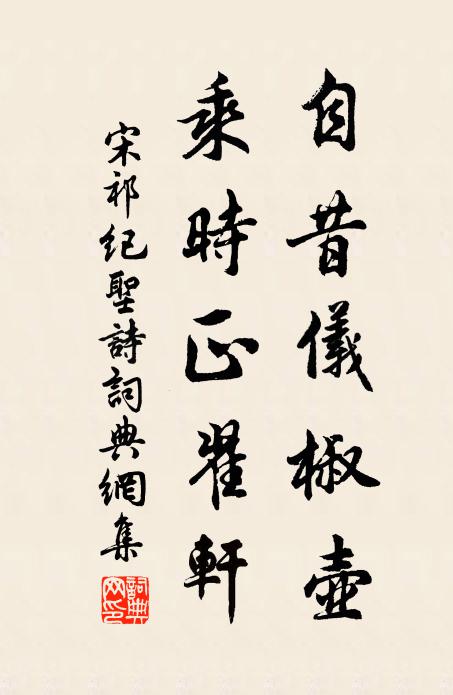 自昔儀椒壺
乘時正翟軒
宋祁紀聖詩詞典網集
詞典网印